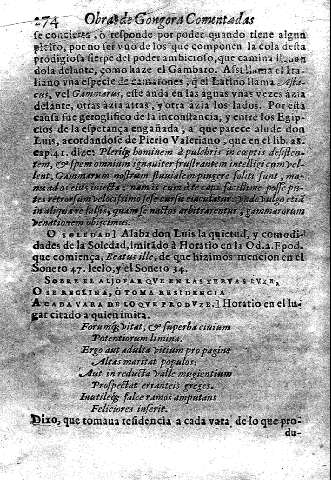 274 Obras de Gongora Comentadas
se concierte, o responde por poder quando tiene algun
oficio, por no ser vno de los que componen la cola desta
prodigiosa sierpe del poder ambicioso, que camina
dola delante, como haze el Gambaro. Assi llama el Ita-
liano vna especie de camarones, o el Latino llama
cus, vel Gammarus, este anda en las aguas vnas vezes àzia
delante, otras àzia atras, y otra àzia los lados. Por esta
causa fue geroglifico de la inconstancia, y entre los Egip-
cios de la esperança engañada, a que parece alude don
Luis, acordandose de Pierio Valeriano, que en el lib. 28.
cap. 41. dize: Plerisq; hominem à pulchris in cœptis desisten-
tem, & spem omnium ignauiter frustrantem intelligi com vel-
lent, Gammarum nostrum fluuialem pingere soliti sunt, ma-
nu ad os illis iniecta: nam is cum à te captus facillimè posse pu-
tes retrorsum velocissimo sese cursu eiaculatur: vnde vulgo etiã
in aliqua re falso, quam se nactos arbitrarentur, gammarorum
venationem obijcimus.
O SOLEDAD! Alaba don Luis la quietud, y comodi-
dades de la Soledad, imitãdo à Horatio en la Od. 2. Epod.
que comiença, Beatus ille, de que hizimos mencion en el
Soneto 47. leelo, y el Soneto 34.
SOBRE EL ALJOFAR QVE EN LAS YERVAS LVZE,
O SE RECLINA, O TOMA RESIDENCIA
A CADA VARA DE LO QVE PRODVZE. ] Horatio en el lu-
gar citado a quien imita.
Forumq; vitat, & superba ciuium
Potentiorum limina.
Ergo aut adulta vitium propagine
Altas maritat populos.
Aut in reducta valle mugientium
Prospectat errantes greges.
Inutilesq; falce ramos amputans
Feliciores inserit.
Dixo, que tomaua residencia a cada vara, de lo que pro-
du-